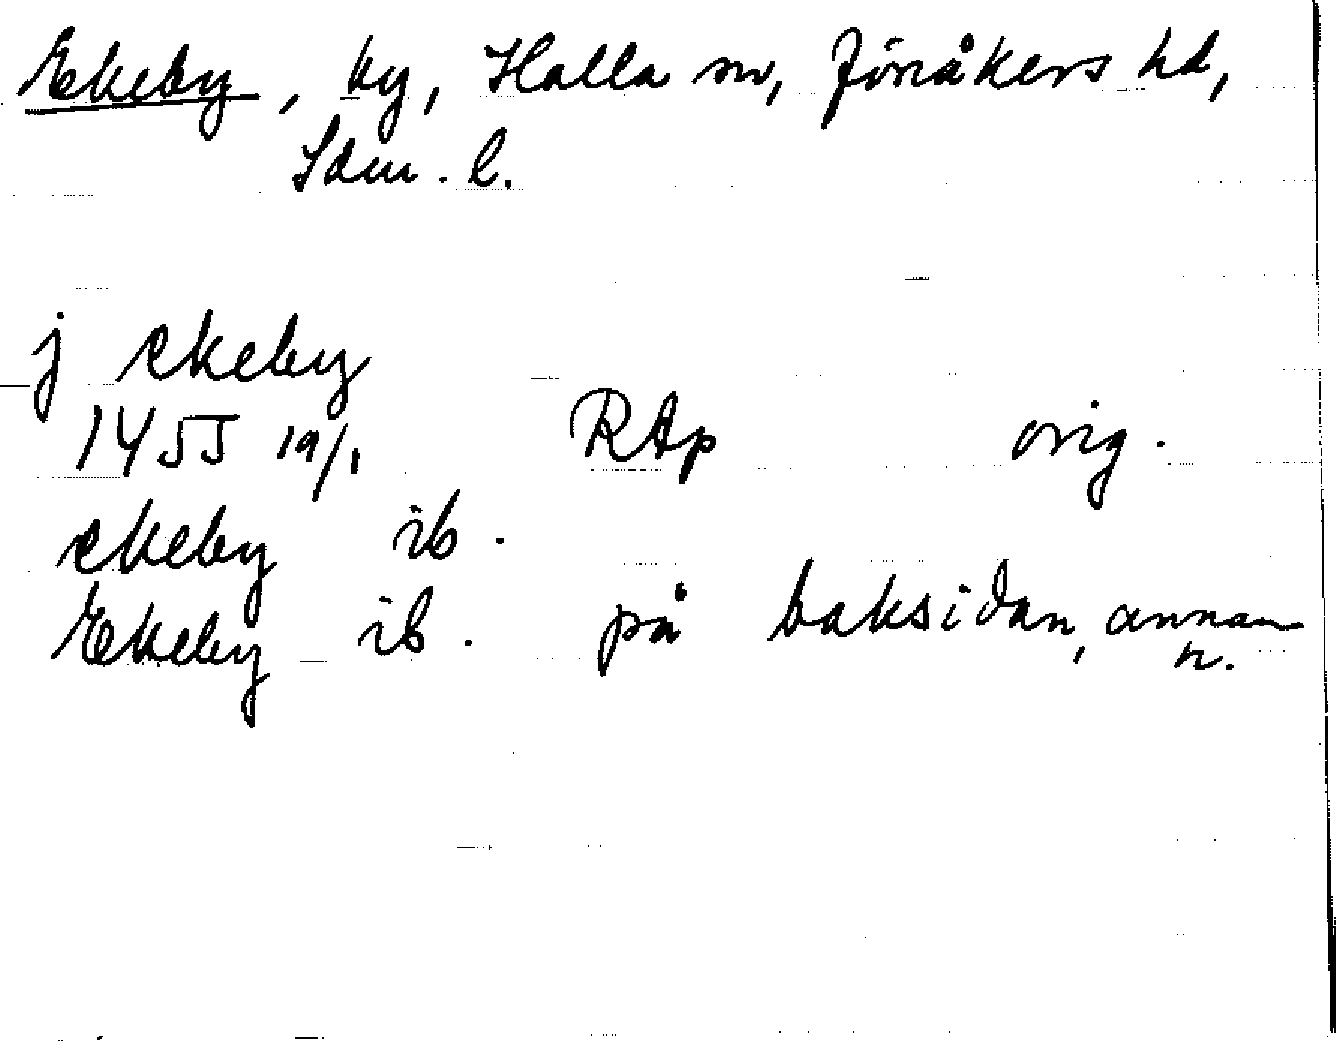 Ekeby, by, Halla sn, Jönåkers hd,
Sdm. l.
j ekeby
1455 19/1 RAp orig.
ekeby ib.
Ekeby ib. på baksidan, annan
h.